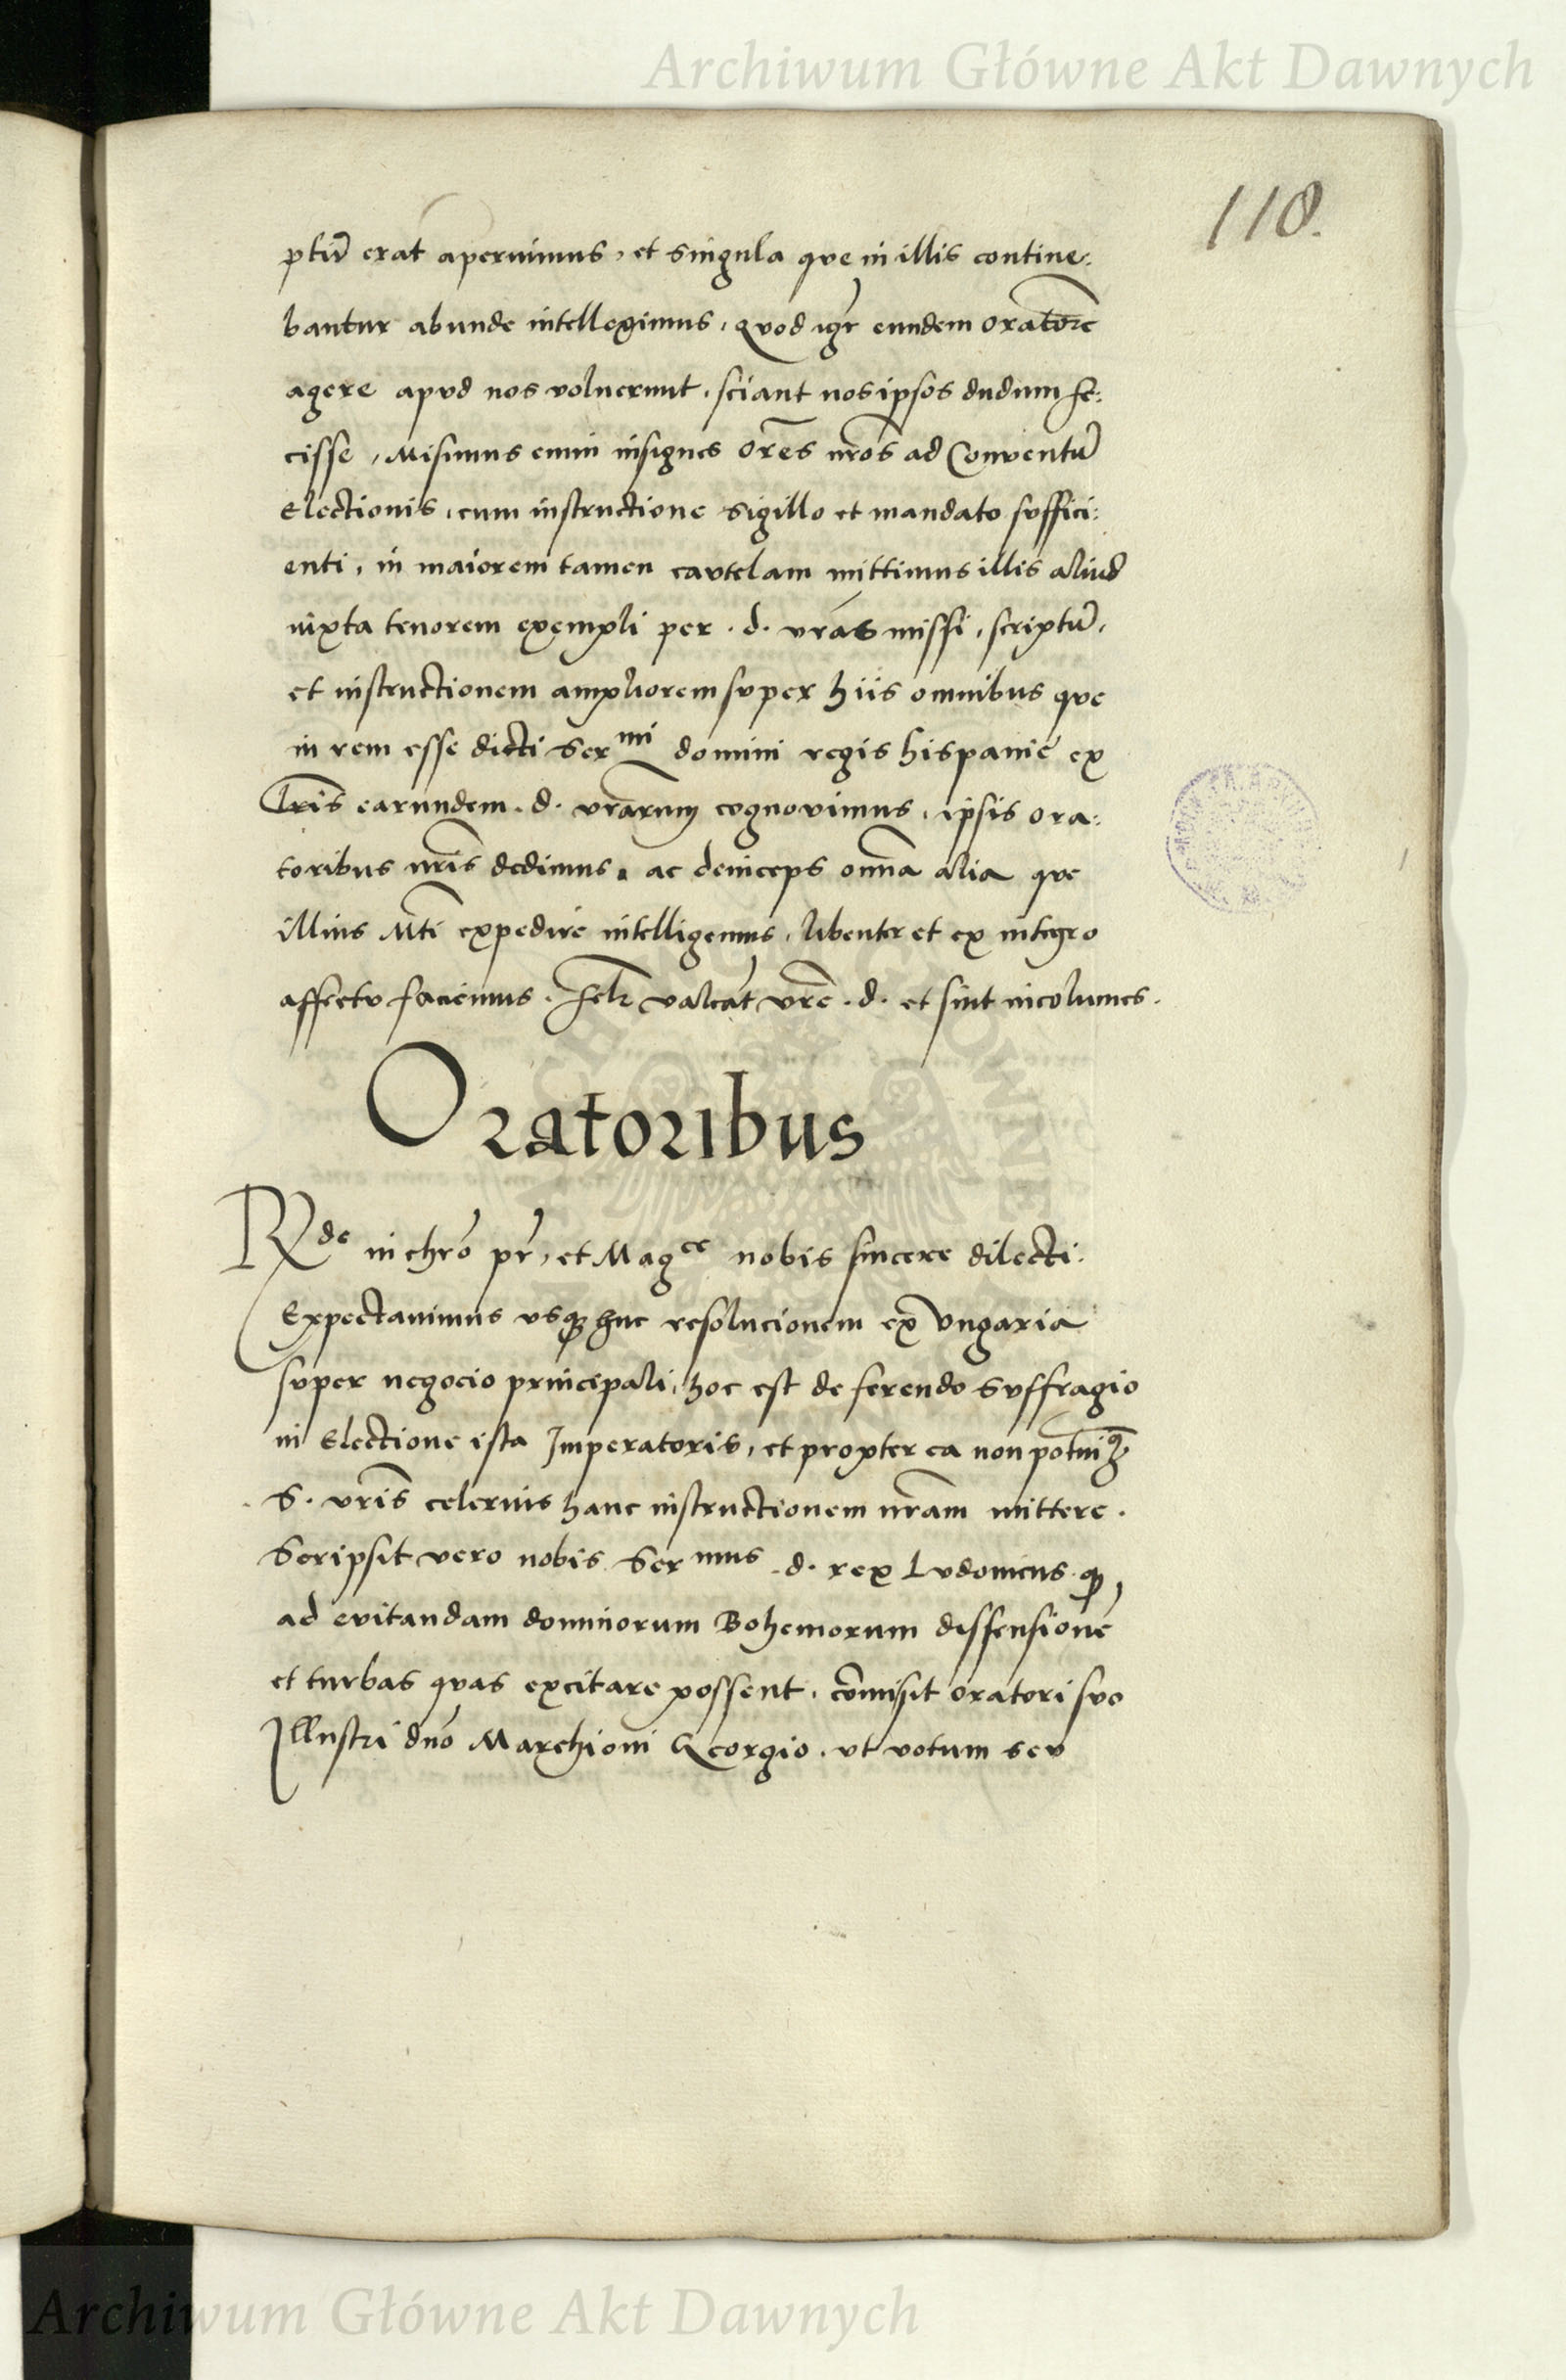 Archiwum Główne Akt Dawnych
118.
ptũ erat aperuimus, et singula que in illis contine:
bantur abunde intelleximus, quod igr̃ eundem oratorẽ
agere apud nos voluerunt, sciant nos ipsos dudum fe:
cisse, Misimus enim insignes or̃es nr̃os ad Conventũ
Electionis, cum instructione sigillo et mandato suffici:
enti, in maiorem tamen cautelam mittimus illis aliud
iuxta tenorem exempli per .d. vr̃as missi, scriptũ,
et instructionem ampliorem super hiis omnibus que
in rem esse dicti Ser^mi domini regis hispanie ex
Lr̃is earundem .d. vr̃arum cognovimus, ipsis ora:
toribus nr̃is dedimus, ac deinceps om̃ia alia que
illius M̃ti expedire intelligemus, libenter et ex integro
affectu faciemus. Felr̃ valeãt vr̃e .d. et sint incolumes.
Oratoribus
R^de in chro p̃r, et Mag^ce nobis sincere dilecti.
Expectavimus usq̃ huc resolucionem ex Ungaria
super negocio principali, hoc est de ferendo Suffragio
in Electione ista Imperatoris, et propter ea non potuimq̃
S. vr̃is celerius hanc instructionem nr̃am mittere.
Scripsit vero nobis Ser mus .d. rex Ludovicus q
ad evitandam dominorum Bohemorum dissensionẽ
et turbas quas excitare possent, com̃isit oratori suo
Illustri dño Marchioni Georgio, ut votum seu
Archiwum Główne Akt Dawnych